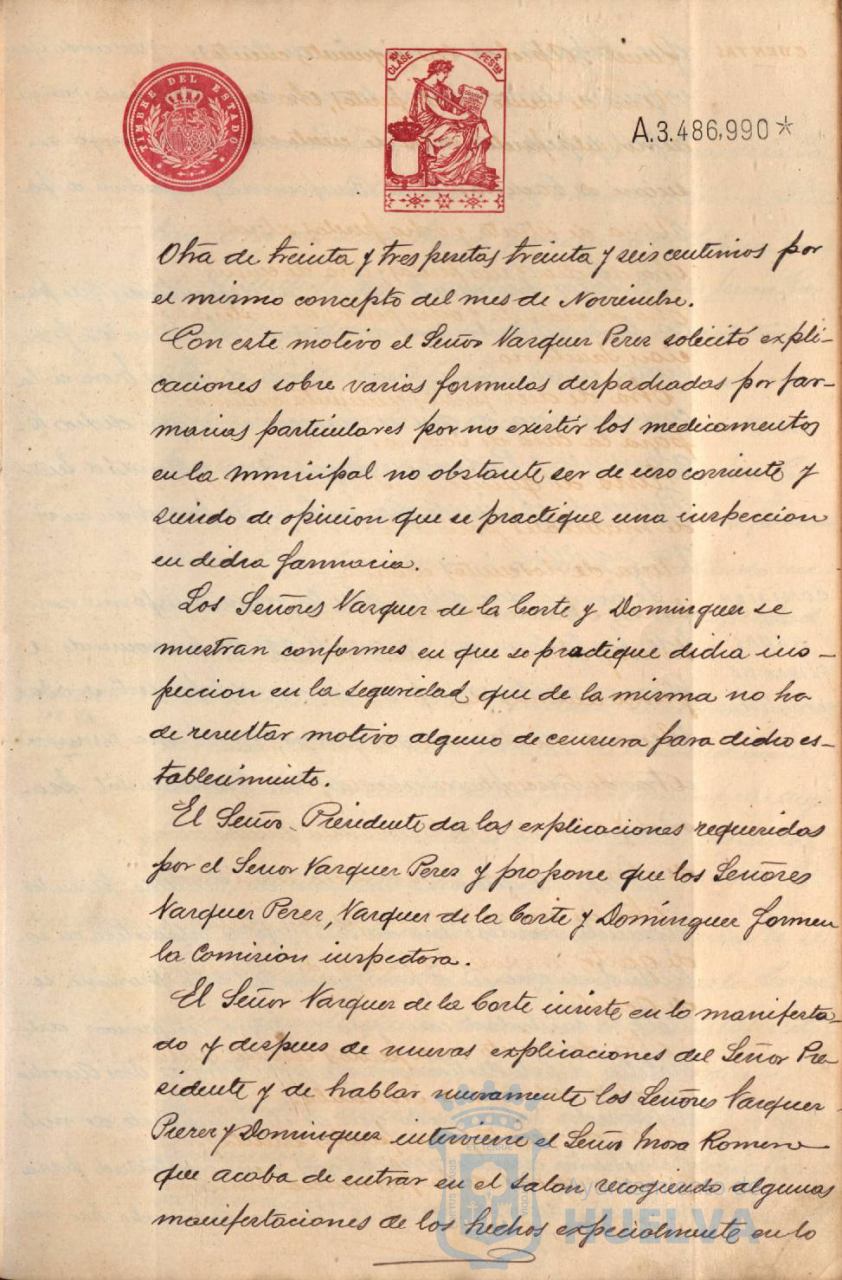 TIMBRE DEL ESTADO
10ª CLASE
2 PESTAS
A.3.486,990*
Otra de treinta y tres pesetas treinta y seis centimos por
el mismo concepto del mes de Noviembre.
Con este motivo el Señor Vazquez Perez solicitó expli-
caciones sobre varias formulas despachadas por far-
macias particulares por no existir los medicamentos
en la municipal no obstante ser de uso corriente y
siendo de opinion que se practique una inspeccion
en dicha farmacia.
Los Señores Vazquez de la Corte y Dominguez se
muestran conformes en que se practique dicha ins-
peccion en la seguridad que de la misma no ha
de resultar motivo alguno de censura para dicho es-
tablecimiento.
El Señor Presidente da las explicaciones requeridas
por el Señor Vazquez Perez y propone que los Señores
Vazquez Perez, Vazquez de la Corte y Domínguez formen
la Comision inspectora.
El Señor Vazquez de la Corte insiste en lo manifesta-
do y despues de nuevas explicaciones del Señor Pre
sidente y de hablar nuevamente los Señores Vazquez
Perez y Dominguez interviene el Señor Mora Romero
que acaba de entrar en el salon recogiendo algunas
manifestaciones de los hechos especialmente en lo
HUELVA